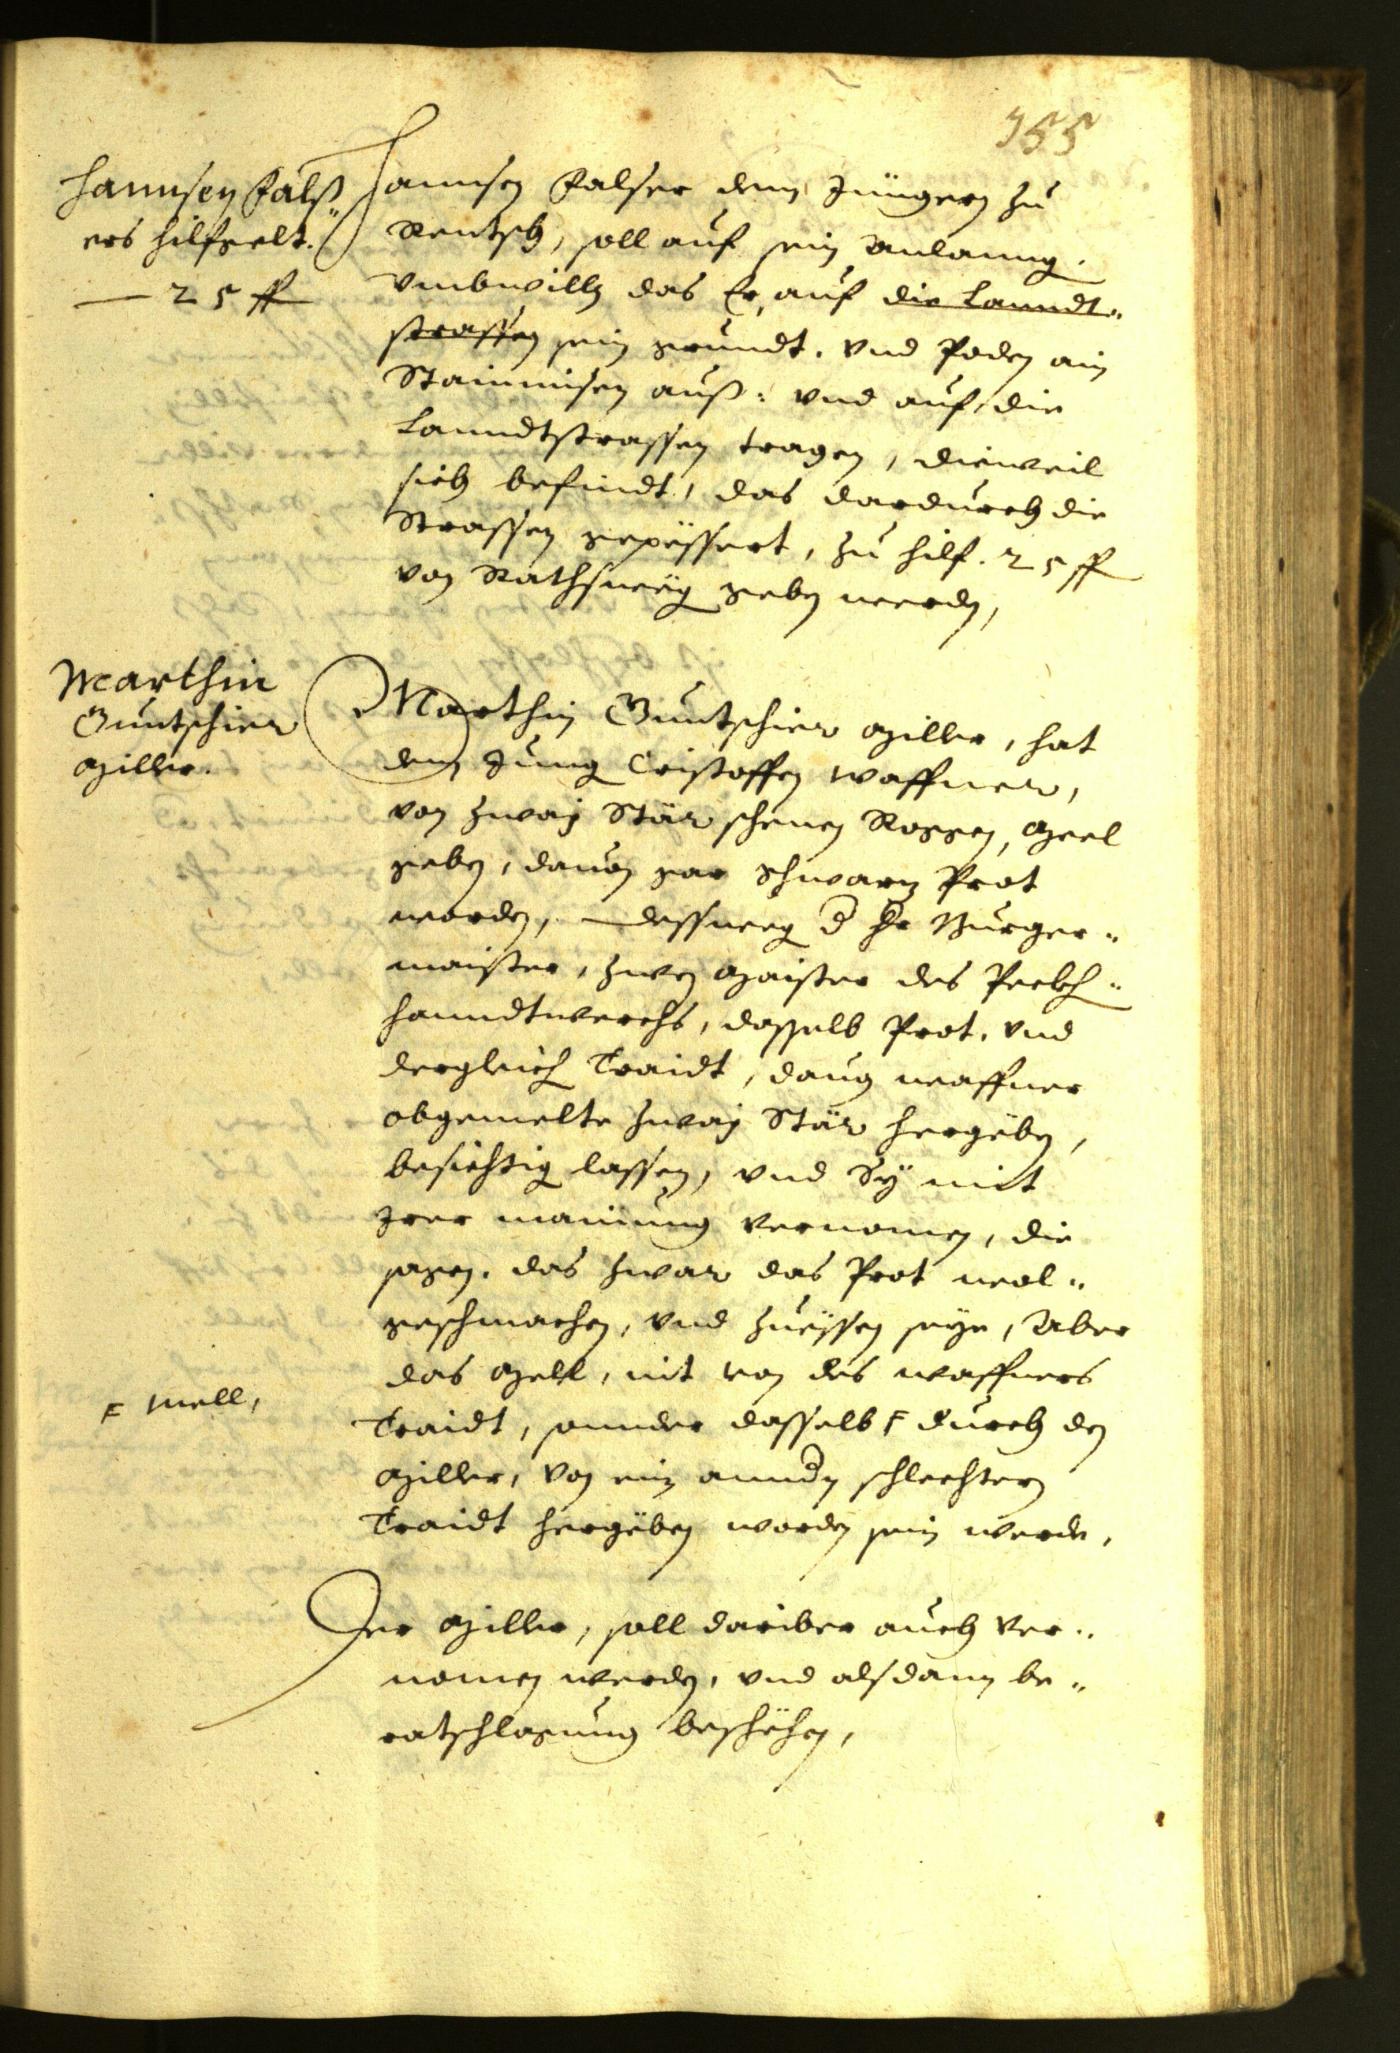 355
Hannsen Falß„
ers hilfgelt.
— 25 ff
Hannsen Falser dem Jüngern zu
Rentsch, soll auf sein anlanng.
vmbwilln das Er, auf die Lanndt„
strassen sein grundt. vnd Poden ain
Stainmisen auß: vnd auf die
Lanndtstrassen tragen, dieweil
sich befindt, das dardurch die
Strassen gepessert, zu hilf. 25 ff
von Rathsweg geben werden,
Marthin
Guntschier
Miller.
Marthin Guntschier Miller, hat
dem Jung Cristoffen Waffner,
von zwaÿ Stär schenen Roggen, Meel
geben, dauon gar schwarz Prot
worden, dessweg d Hr Burger„
maister, zwen Maister des Peckh„
hanndtwerchs, dasselb Prot. vnd
dergleich Traidt, dauon Waffner
obgemelte zwaÿ Stär hergeben,
besichtig lassen, vnd Sÿ mit
Irer mainung vernomen, die
sagen. das zwar das Prot wol„
geschmachen, vnd zuessen seÿe, Aber
das Mell, nit von des Waffners
Traidt, sonnder dasselb F durch den
F Mell,
Miller, von ein anndn schlechtern
Traidt hergeben worden sein werde,
Der Miller, soll dariber auch ver„
nomen werden, vnd alsdann be„
ratschlagung beschehen,